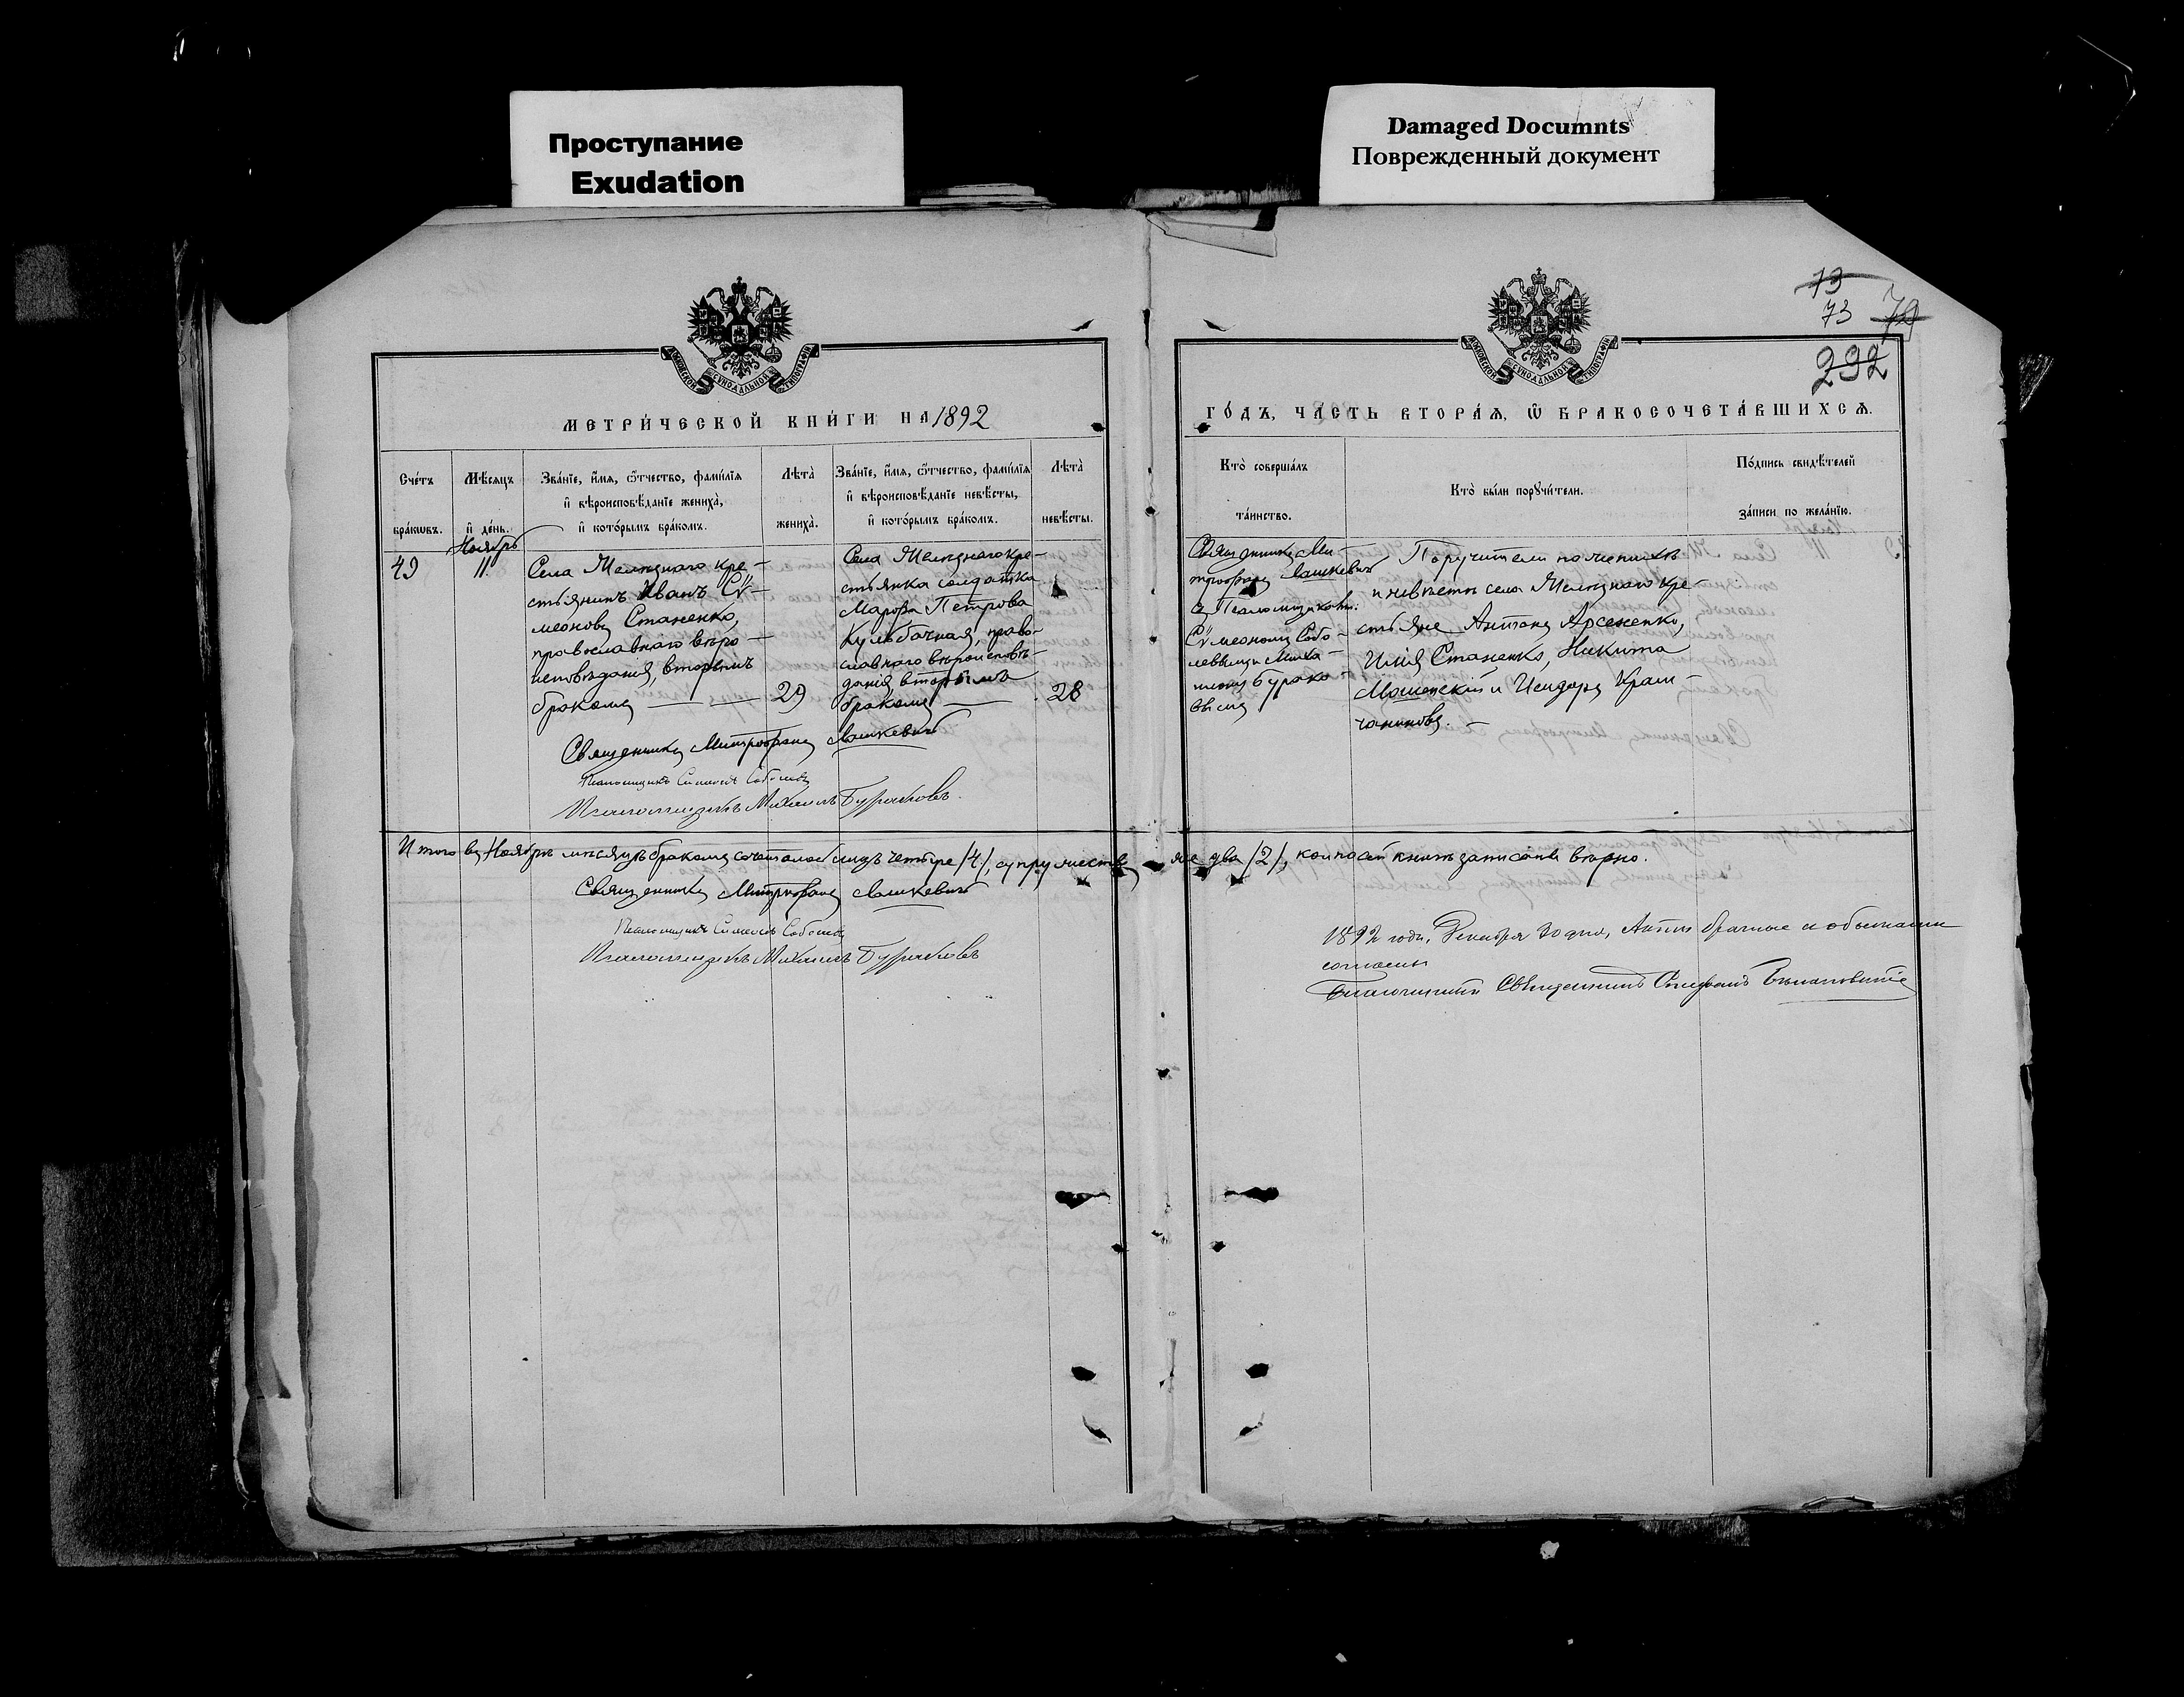 Проступание
Exudation
Damaged Documnts
Поврежденный документ
73
73 72
292
МЕТРИ́ЧЕСКОЙ КНИ́ГИ НА 1892
ГО́ДЪ, ЧА́СТЬ ВТОРА́Я, Ѽ БРАКОСОЧЕТА́ВШИХСЯ.
Сче́тъ бра́кѡвъ.
Мѣ́сяцъ и де́нь.
Зва́нїе, и́мя, ѻ҆́тчество, фами́лїя
и҆ вѣроисповѣ́данїе жениха̀,
и҆ кото́рымъ бра́комъ.
Лѣта̀ жениха̀.
Зва́нїе, и́мя, ѻ҆́тчество, фами́лїя
и҆ вѣроисповѣ́данїе невѣ́сты,
и҆ кото́рымъ бра́комъ.
Лѣта̀ невѣ́сты.
Кто̀ соверша́лъ та́инство.
Кто̀ бы́ли порꙋчи́тели.
По́дпись свидѣ́телей за́писи по жела́нїю.
49
Ноябрь
11.
Села кре-
стьянинъ Иванъ Сѵ-
меоновъ Стаженко,
православнаго вѣро-
исповѣданія, вторымъ
бракомъ
29
Села кре-
стьянка солдатка
Марѳа Петрова
Кульбачная, право-
славнаго вѣроисповѣ-
данія, вторымъ
бракомъ
28
Священникъ Ми-
трофанъ Лашкевичъ
съ Псаломщиками:
Сѵмеономъ Собо-
левымъ и Миха-
иломъ Бурако-
вымъ
Поручители по женихѣ
и невѣстѣ села кре-
стьяне Антонъ Арсененко,
Илія Стаженко, Никита
и Исидоръ
Священникъ Митрофанъ Лашкевичъ
Псаломщикъ Симеонъ Соболевъ
Псаломщикъ Михаилъ Бураковъ.
Итого въ Ноябрѣ мѣсяцѣ бракомъ сочеталось лицъ четыре /4/, супружествъ же два /2/, кои по сей книгѣ записаны вѣрно.
Священникъ Митрофанъ Лашкевичъ
Псаломщикъ Симеонъ Соболевъ
Псаломщикъ Михаилъ Бураковъ
1892 года, Декабря 30 дня, Акты брачные съ обысками
согласны
Благочинный Священникъ